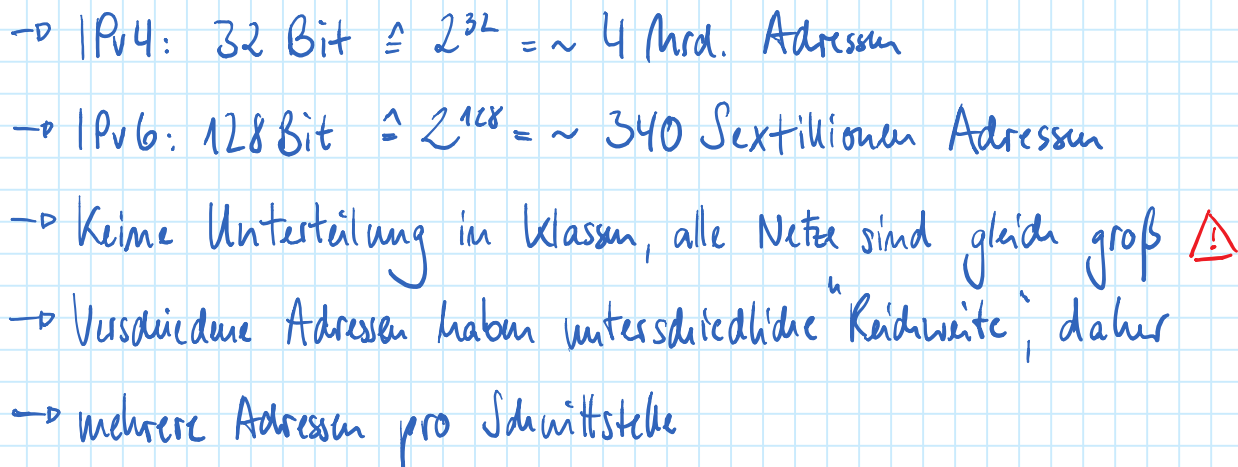 → IPv4: 32 Bit ≙ 2³² = ~ 4 Mrd. Adressen
→ IPv6: 128 Bit ≙ 2¹²⁸ = ~ 340 Sextillionen Adressen
→ Keine Unterteilung in Klassen, alle Netze sind gleich groß ⚠
→ Verschiedene Adressen haben unterschiedliche "Reichweite", daher
→ mehrere Adressen pro Schnittstelle